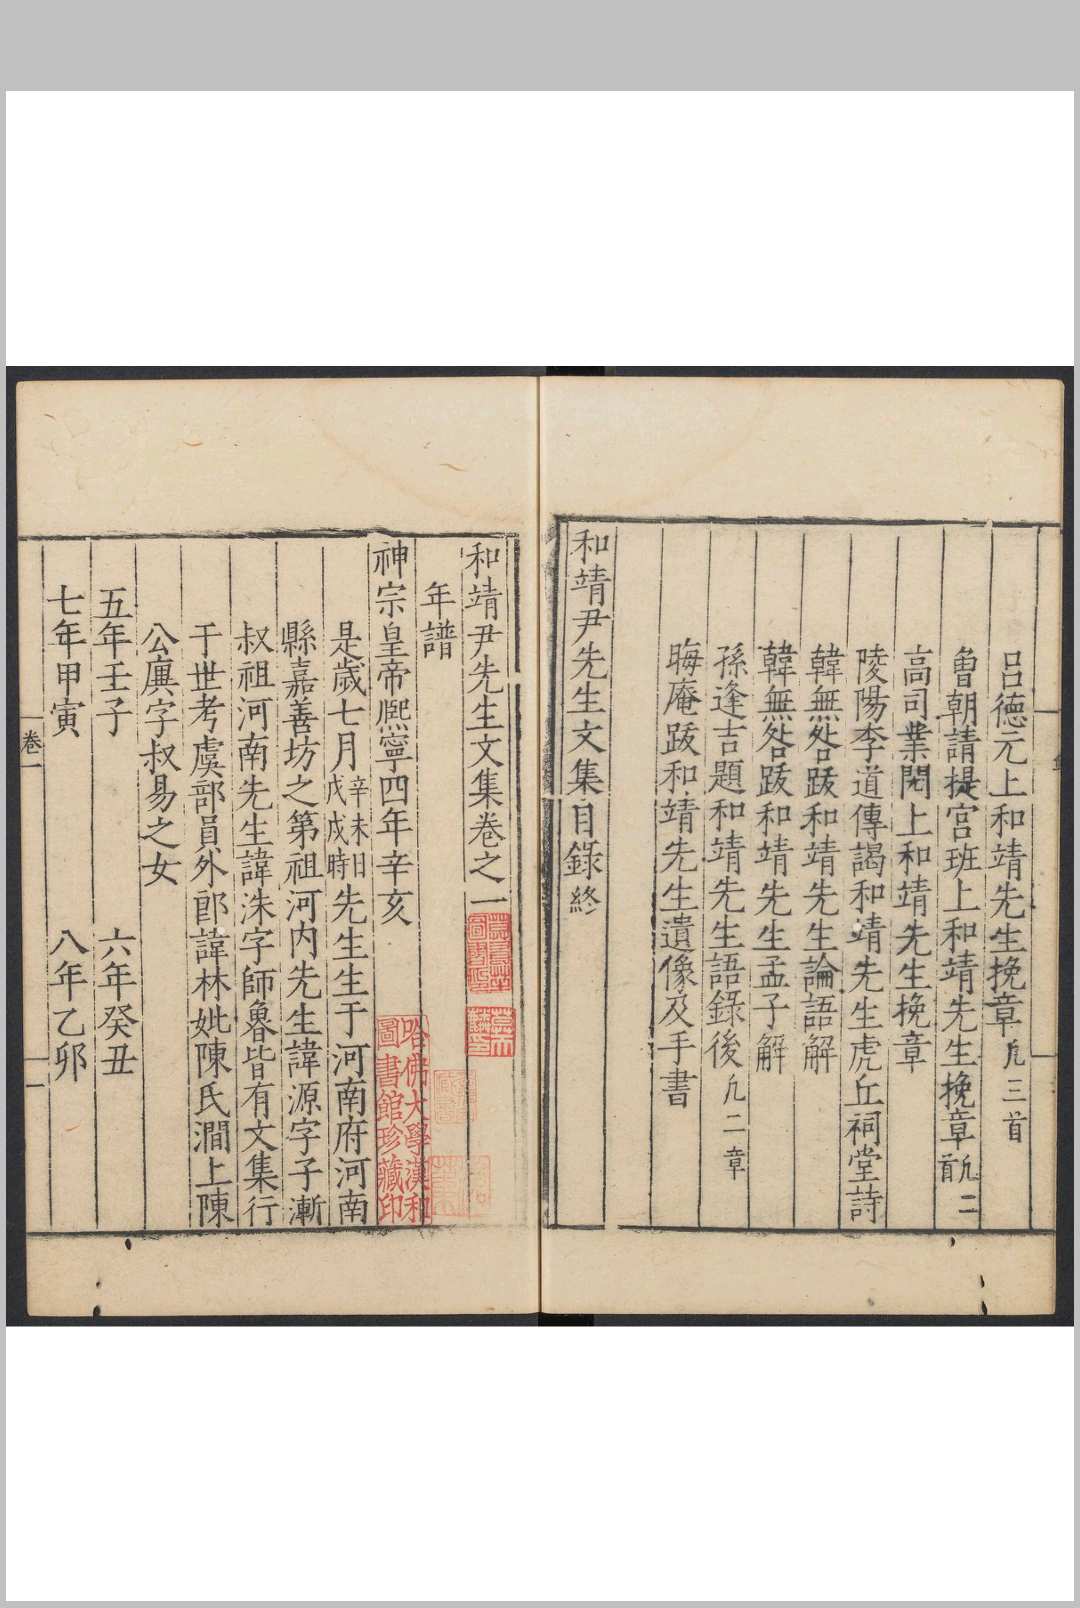 呂德元上和靖先生挽章凡三首
魯朝請提宮班上和靖先生挽章凡二首
高司業閌上和靖先生挽章
陵陽李道傳謁和靖先生虎丘祠堂詩
韓無咎跋和靖先生論語解
韓無咎跋和靖先生孟子解
孫逢吉題和靖先生語錄後凡二章
晦庵跋和靖先生遺像及手書
和靖尹先生文集目錄終
和靖尹先生文集卷之一
年譜
神宗皇帝熙寧四年辛亥
是歲七月辛未日戊戌時先生生于河南府河南
縣嘉善坊之第祖河內先生諱源字子漸
叔祖河南先生諱洙字師魯皆有文集行
于世考虞部員外郎諱林妣陳氏澗上陳
公廙字叔易之女
五年壬子 六年癸丑
七年甲寅 八年乙卯
卷一
一
哈佛大學漢和
圖書館珍藏印